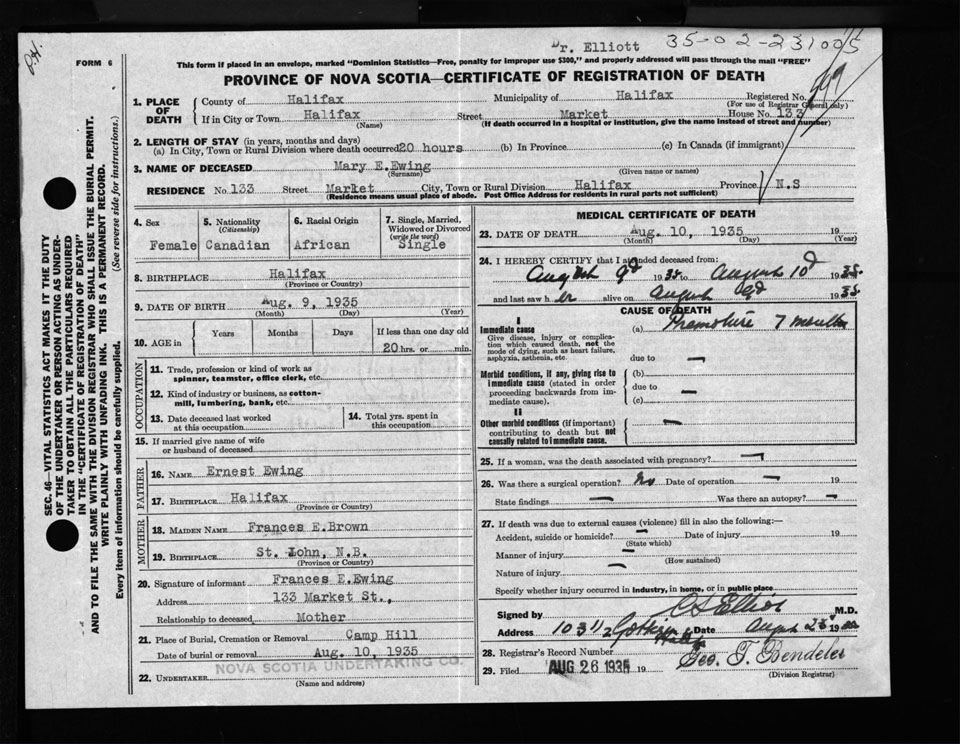 P.H.
Dr. Elliott 35-02-231005
FORM 6
This form if placed in an envelope, marked "Dominion Statistics—Free, penalty for improper use $300," and properly addressed will pass through the mail "FREE"
PROVINCE OF NOVA SCOTIA—CERTIFICATE OF REGISTRATION OF DEATH
SEC. 46—VITAL STATISTICS ACT MAKES IT THE DUTY
OF THE UNDERTAKER OR PERSON ACTING AS UNDER-
TAKER TO OBTAIN ALL THE PARTICULARS REQUIRED
IN THE "CERTIFICATE OF REGISTRATION OF DEATH"
AND TO FILE THE SAME WITH THE DIVISION REGISTRAR WHO SHALL ISSUE THE BURIAL PERMIT.
WRITE PLAINLY WITH UNFADING INK. THIS IS A PERMANENT RECORD.
Every item of information should be carefully supplied. (See reverse side for instructions.)
1. PLACE OF DEATH County of Halifax Municipality of Halifax Registered No.
(For use of Registrar General only)
If in City or Town Halifax Street Market House No. 133
(Name) (If death occurred in a hospital or institution, give the name instead of street and number)
2. LENGTH OF STAY (in years, months and days)
(a) In City, Town or Rural Division where death occurred 20 hours (b) In Province (c) In Canada (if immigrant)
3. NAME OF DECEASED Mary E.Ewing
(Surname) (Given name or names)
RESIDENCE No. 133 Street Market City, Town or Rural Division Halifax Province N.S
(Residence means usual place of abode. Post Office Address for residents in rural parts not sufficient)
4. Sex 5. Nationality 6. Racial Origin 7. Single, Married,
(Citizenship) Widowed or Divorced
(write the word)
Female Canadian African Single
8. BIRTHPLACE Halifax
(Province or Country)
9. DATE OF BIRTH Aug. 9, 1935
(Month) (Day) (Year)
10. AGE in Years Months Days If less than one day old
20 hrs. or min.
OCCUPATION
11. Trade, profession or kind of work as
spinner, teamster, office clerk, etc.
12. Kind of industry or business, as cotton-
mill, lumbering, bank, etc.
13. Date deceased last worked
at this occupation
14. Total yrs. spent in
this occupation
15. If married give name of wife
or husband of deceased
FATHER
16. NAME Ernest Ewing
17. BIRTHPLACE Halifax
(Province or Country)
MOTHER
18. MAIDEN NAME Frances E.Brown
19. BIRTHPLACE St. John, N.B.
(Province or Country)
20. Signature of informant Frances E.Ewing
Address 133 Market St.,
Relationship to deceased Mother
21. Place of Burial, Cremation or Removal Camp Hill
Date of burial or removal Aug. 10, 1935
NOVA SCOTIA UNDERTAKING CO.
22. UNDERTAKER
(Name and address)
MEDICAL CERTIFICATE OF DEATH
23. DATE OF DEATH Aug. 10, 1935 19
(Month) (Day) (Year)
24. I HEREBY CERTIFY that I attended deceased from:
August 9d 1935 to August 10d 1935
and last saw her alive on August 9d 1935
CAUSE OF DEATH
I
Immediate cause
Give disease, injury or complica-
tion which caused death, not the
mode of dying, such as heart failure,
asphyxia, asthenia, etc.
(a) Premature 7 months
due to —
Morbid conditions, if any, giving rise to
immediate cause (stated in order
proceeding backwards from im-
mediate cause).
(b)
due to —
(c)
II
Other morbid conditions (if important)
contributing to death but not
causally related to immediate cause.
—
25. If a woman, was the death associated with pregnancy? —
26. Was there a surgical operation? No Date of operation — 19
State findings — Was there an autopsy? —
27. If death was due to external causes (violence) fill in also the following:—
Accident, suicide or homicide? — Date of injury 19
(State which)
Manner of injury —
(How sustained)
Nature of injury —
Specify whether injury occurred in industry, in home, or in public place
Signed by C S Elliot M.D.
Address Date August 19
28. Registrar's Record Number
29. Filed AUG 26 1935 19 Geo. T. Bendeler
(Division Registrar)